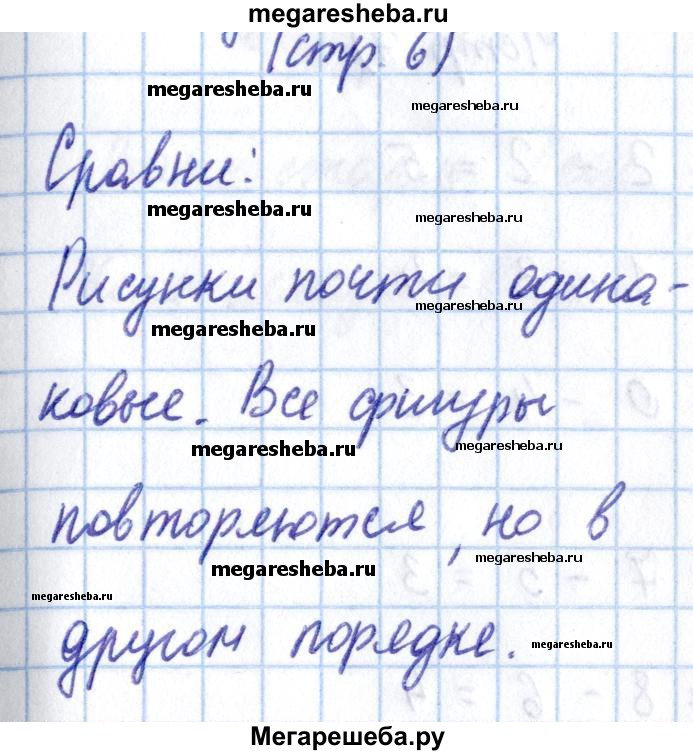 megaresheba.ru
(стр. 6)
megaresheba.ru
megaresheba.ru
Сравни:
megaresheba.ru
megaresheba.ru
Рисунки почти одина-
megaresheba.ru
megaresheba.ru
ковые. Все фигуры
megaresheba.ru
megaresheba.ru
повторяются, но в
megaresheba.ru
megaresheba.ru
megaresheba.ru
другом порядке.
megaresheba.ru
Мегарешеба.ру